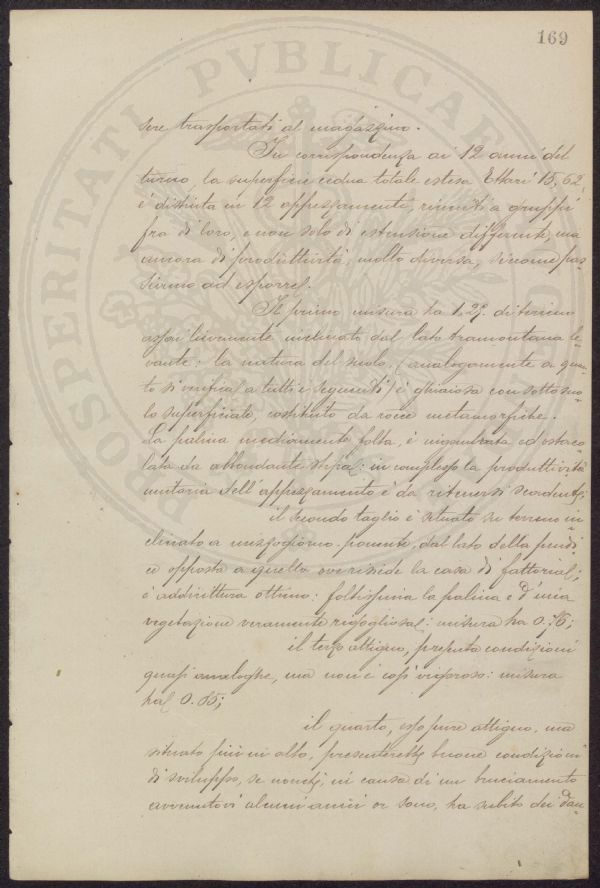 169
PROSPERITATI PVBLICAE
sere trasportati al magazzino.
In corrispondenza ai 12 anni del
turno, la superficie cedua totale estesa Ettari 15,62
è distinta in 12 appezzamenti, riuniti a gruppi
fra di loro, e non solo di estensione differente, ma
ancora di produttività, molto diversa, siccome pas-
siamo ad esporre.
Il primo misura ha 1.29. di terreno
assai lievemente inclinato dal lato tramontana le-
vante: la natura del suolo, (analogamente a quan-
to si verifica a tutti i seguenti) è ghiaiosa con sottosuo-
lo superficiale, costituito da rocce metamorfiche.
La palina mediamente folta, è ingombrata ed ostaco-
lata da abbondante stipa: in complesso la produttività
unitaria dell'appezzamento è da ritenersi scadente;
il secondo taglio è situato su terreno in-
clinato a mezzogiorno-ponente, dal lato della pendi-
ce opposta a quella ove risiede la casa di fattoria;
è addirittura ottimo: foltissima la palina e d'una
vegetazione veramente rigogliosa: misura ha 0.76;
il terzo attiguo, presenta condizioni
quasi analoghe, ma non è così vigoroso: misura
ha 0.85;
il quarto, esso pure attiguo, ma
situato più in alto, presenterebbe buone condizioni
di sviluppo, se nonché, in causa di un bruciamento
avvenutovi alcuni anni or sono, ha subito dei dan-